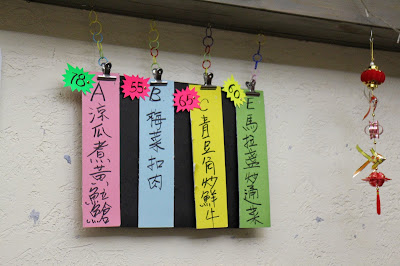 78
A 涼瓜煮黃
55
B 梅菜扣肉
65
C 青豆角炒鮮牛
60
E 馬拉盞炒通菜